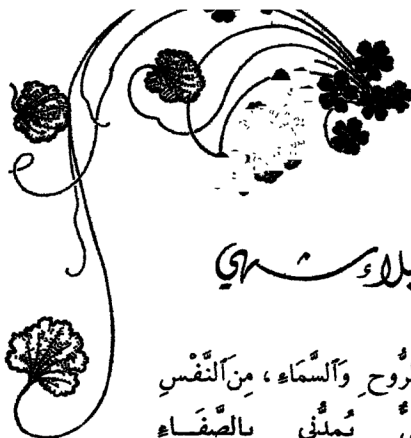 بلاء شهي
لرُّوحِ وَٱلسَّمَاءِ ، مِنَ ٱلنَّفْسِ
يُمِدُّني بِالصَّفَاءِ